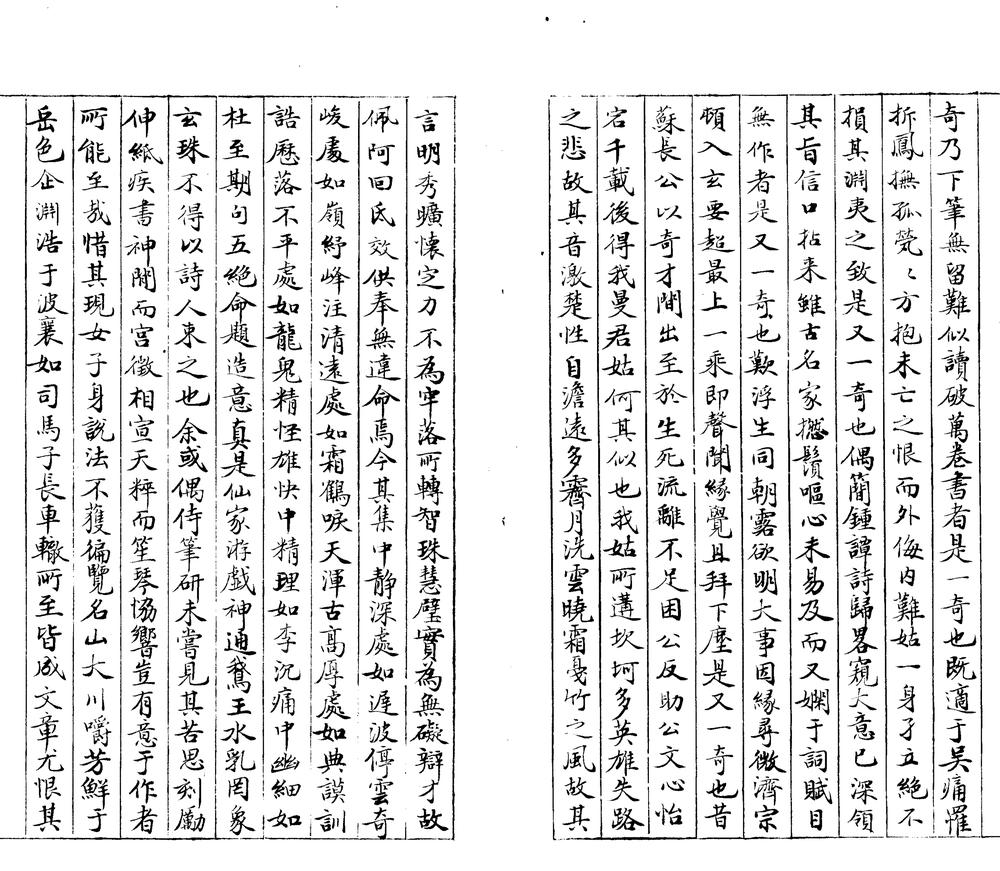 奇乃下筆無留難似讀破萬卷書者是一奇也既適于吳痛罹
折鳳撫孤煢〻方抱未亡之恨而外侮内難姑一身孑立絕不
損其淵夷之致是又一奇也偶簡鍾譚詩歸畧窺大意已深領
其旨信口拈來雖古名家撚鬚嘔心未易及而又嫻于詞賦目
無作者是又一奇也歎浮生同朝露欲明大事因緣尋微濟宗
頓入玄要超最上一乘即聲聞緣覺且拜下塵是又一奇也昔
蘇長公以奇才間出至於生死流離不足困公反助公文心怡
宕千載後得我曼君姑何其似也我姑所遘坎坷多英雄失路
之悲故其音激楚性自澹遠多霽月洗雲曉霜戞竹之風故其
言明秀曠懷定力不為牢落所轉智珠慧璧實為無礙辯才故
佩阿回氐效供奉無違命焉今其集中靜深處如遲波停雲奇
峻處如嶺紓峰注清遠處如霜鶴唳天渾古高厚處如典謨訓
誥歷落不平處如龍鬼精怪雄快中精理如李沉痛中幽細如
杜至期句五絕命題造意真是仙家游戲神通鵞王水乳罔象
玄珠不得以詩人束之也余或偶侍筆研未嘗見其苦思刻勵
伸紙疾書神閒而宮徵相宣天粹而笙琴協響豈有意于作者
所能至哉惜其現女子身說法不獲徧覽名山大川嚼芳鮮于
岳色企淵浩于波襄如司馬子長車轍所至皆成文章尤恨其